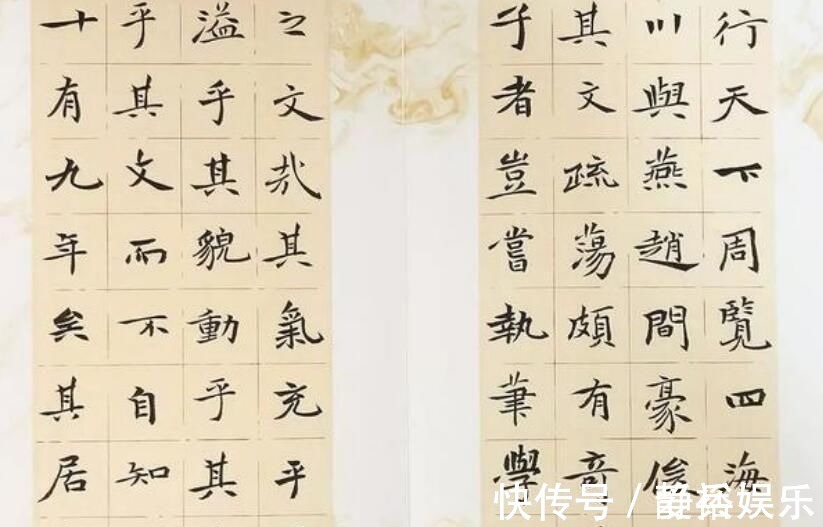 行天下周覽四海
川與燕趙間豪俊
其文疏蕩頗有奇
子者豈嘗執筆學
之文哉其氣充乎
溢乎其貌動乎其
乎其文而不自知
十有九年矣其居
快传号 / 娱乐